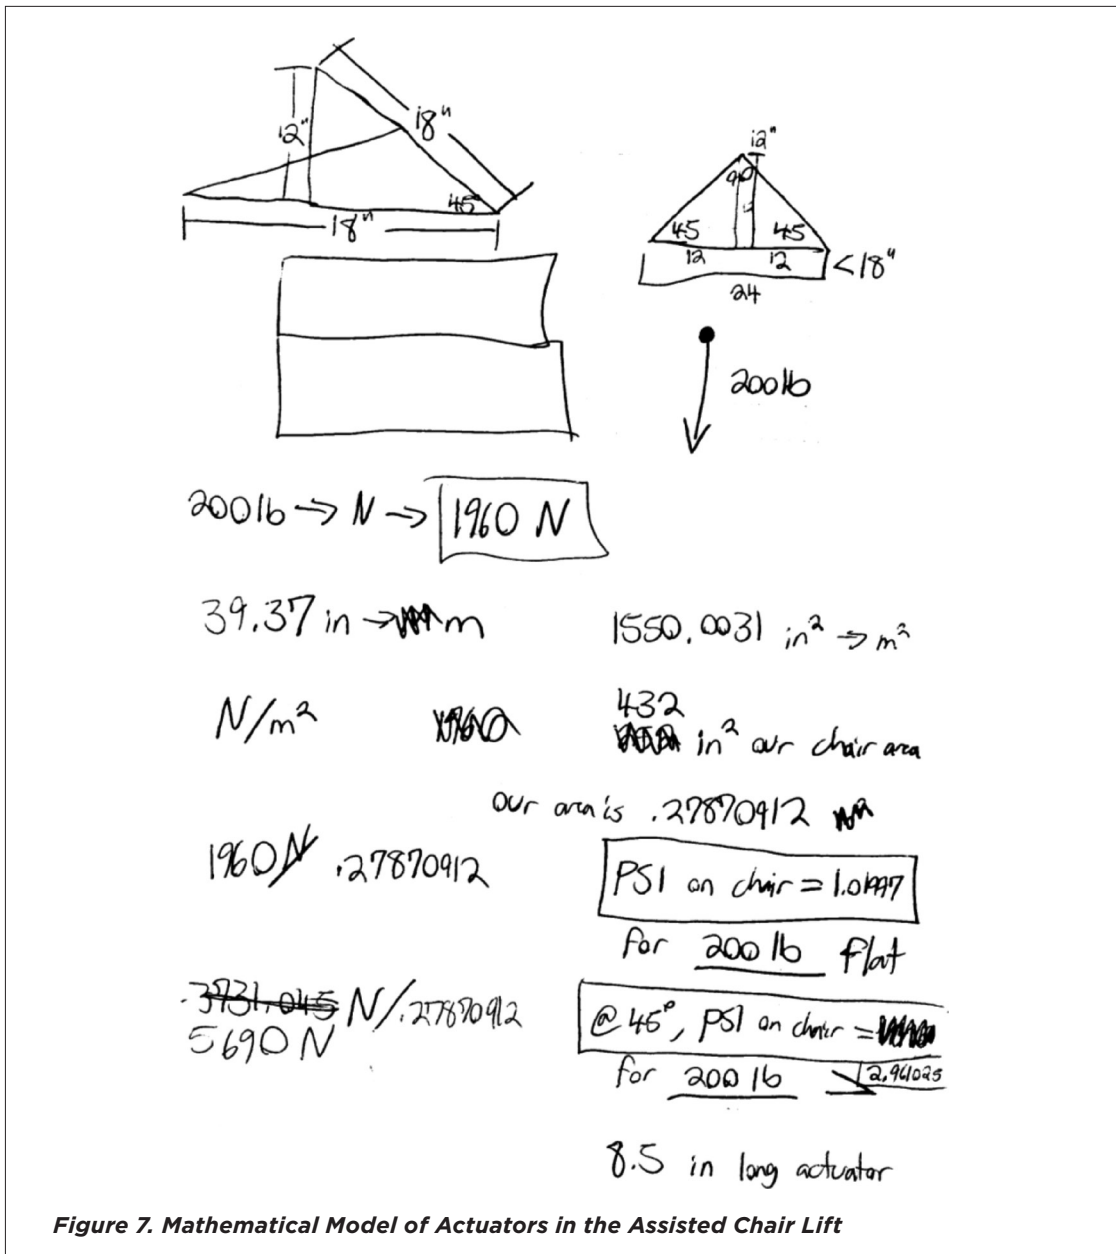 12"
18"
45°
18"
12"
90
12
45 45
12 12
<18"
24
200lb
200lb → N → 1960 N
39.37 in → m
1550.0031 in² → m²
N/m²
432
in² our chair area
our area is .27870912
1960 N/.27870912
PSI on chair = 1.01997
for 200 lb flat
.3731.045 N/.27870912
5690 N
@ 45°, PSI on chair =
for 200 lb 2.961025
8.5 in long actuator
Figure 7. Mathematical Model of Actuators in the Assisted Chair Lift